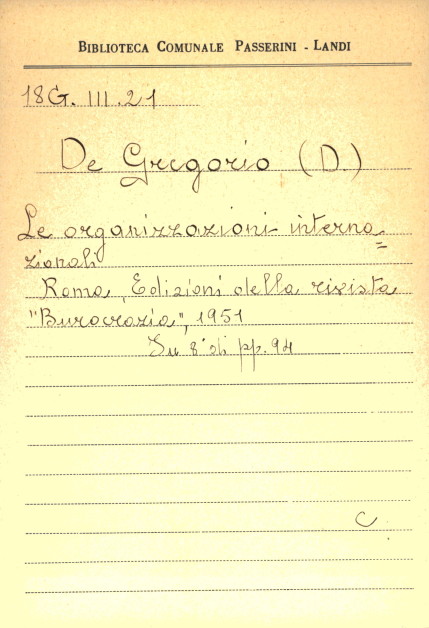 BIBLIOTECA COMUNALE PASSERINI - LANDI
18G. III. 21
De Gregorio (D.)
Le organizzazioni interna=
zionali
Roma, Edizioni della rivista
"Burocrazia", 1951
In 8° di pp. 94
C